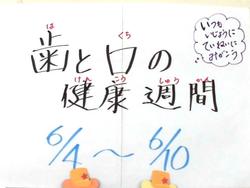 歯と口の
健康週間
6/4～6/10
は
くち
けん こう しゅう かん
いつも
いじょうに
ていねいに
みがこう